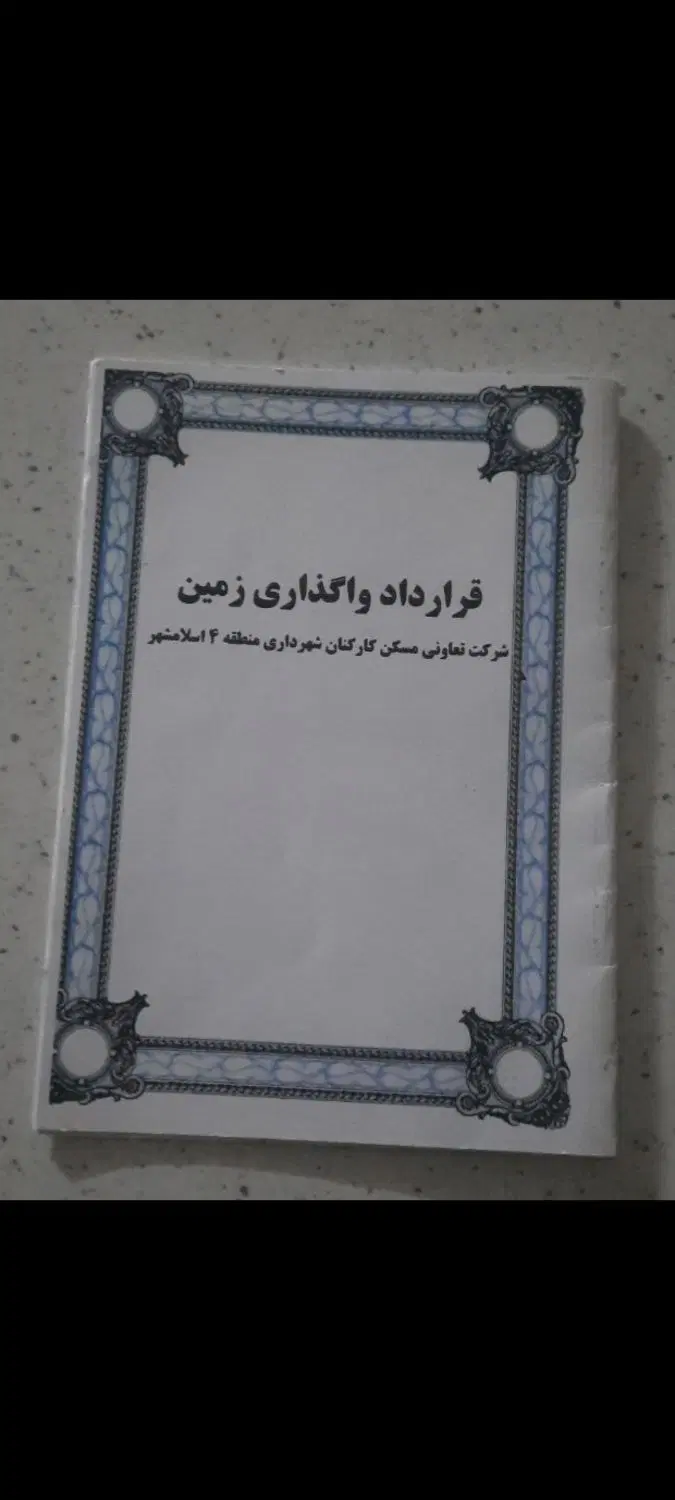 قرارداد واگذاری زمین
شرکت تعاونی مسکن کارکنان شهرداری منطقه ۴ اسلامشهر